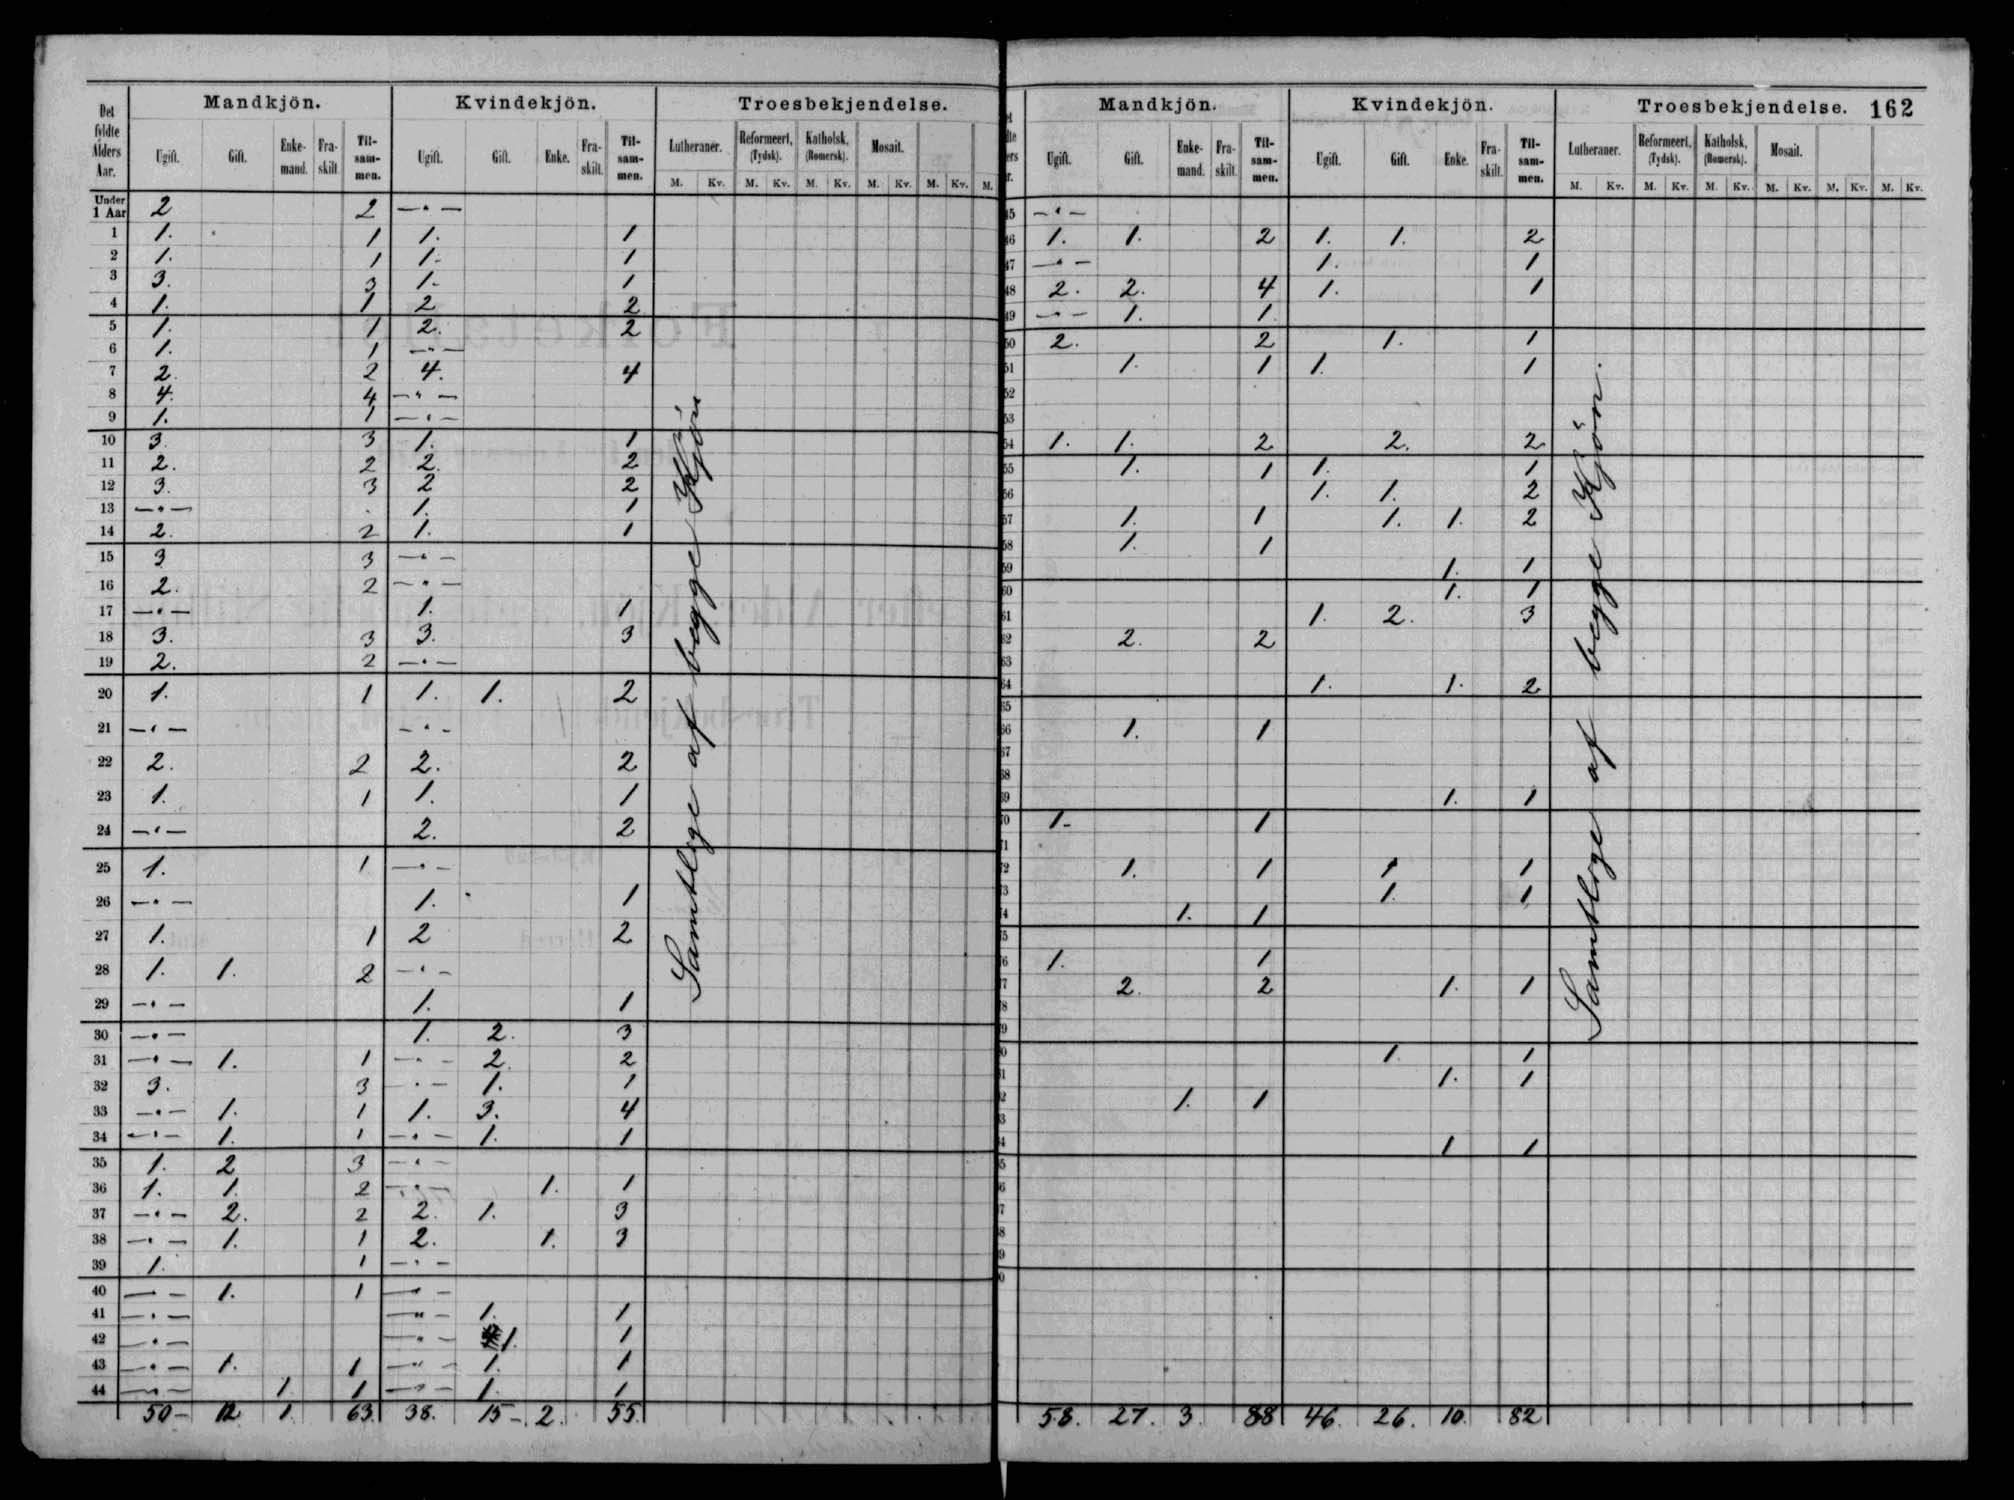 Det fyldte Alders Aar. Mandkjön. Kvindekjön. Troesbekjendelse.
Ugift. Gift. Enke-mand. Fra-skilt. Til-sam-men. Ugift. Gift. Enke. Fra-skilt. Til-sam-men. Lutheraner. Reformeert, (Tydsk). Katholsk, (Romersk). Mosait.
M. Kv. M. Kv. M. Kv. M. Kv. M. Kv. M.
Under 1 Aar 2 2 —„—
1 1. 1 1. 1
2 1. 1 1. 1
3 3. 3 1. 1
4 1. 1 2 2
5 1. 1 2. 2
6 1. 1 —„—
7 2. 2 4. 4
8 4. 4 —„—
9 1. 1 —„—
10 3. 3 1. 1
11 2. 2 2. 2
12 3. 3 2 2
13 —„— 1. 1
14 2. 2 1. 1
15 3 3 —„—
16 2. 2 —„—
17 —„— 1. 1
18 3. 3 3. 3
19 2. 2 —„—
20 1. 1 1. 1. 2
21 —„— —„—
22 2. 2 2. 2
23 1. 1 1. 1
24 —„— 2. 2
25 1. 1 —„—
26 —„— 1. 1
27 1. 1 2 2
28 1. 1. 2 —„—
29 —„— 1. 1
30 —„— 1. 2. 3
31 —„— 1. 1 —„— 2. 2
32 3. 3 —„— 1. 1
33 —„— 1. 1 1. 3. 4
34 —„— 1. 1 —„— 1. 1
35 1. 2 3 —„—
36 1. 1. 2 —„— 1. 1
37 —„— 2. 2 2. 1. 3
38 —„— 1. 1 2. 1. 3
39 1. 1 —„—
40 —„— 1. 1 —„—
41 —„— —„— 1. 1
42 —„— —„— 1. 1
43 —„— 1. 1 —„— 1. 1
44 —„— 1. 1 —„— 1. 1
50 — 12 1 63. 38. 15 — 2. 55.
Samtlige af begge Kjön
Mandkjön. Kvindekjön. Troesbekjendelse. 162
Ugift. Gift. Enke-mand. Fra-skilt. Til-sam-men. Ugift. Gift. Enke. Fra-skilt. Til-sam-men. Lutheraner. Reformeert, (Tydsk). Katholsk, (Romersk). Mosait.
M. Kv. M. Kv. M. Kv. M. Kv. M. Kv. M. Kv.
45 —„—
46 1. 1. 2 1. 1. 2
47 —„— 1. 1
48 2. 2. 4 1. 1
49 —„— 1. 1
50 2. 2 1. 1
51 1. 1 1. 1
52
53
54 1. 1. 2 2. 2
55 1. 1 1. 1
56 1. 1. 2
57 1. 1 1. 1. 2
58 1. 1
59 1. 1
60 1. 1
61 1. 2. 3
62 2. 2
63
64 1. 1. 2
65
66 1. 1
67
68
69 1. 1
70 1. 1
71
72 1. 1 1 1
73 1. 1
74 1. 1
75
76 1. 1
77 2. 2 1. 1
78
79
80 1. 1
81 1. 1
82 1. 1
83
84 1 1
85
86
87
88
89
90
58. 27. 3. 88 46. 26. 10. 82
Samtlige af begge Kjön.